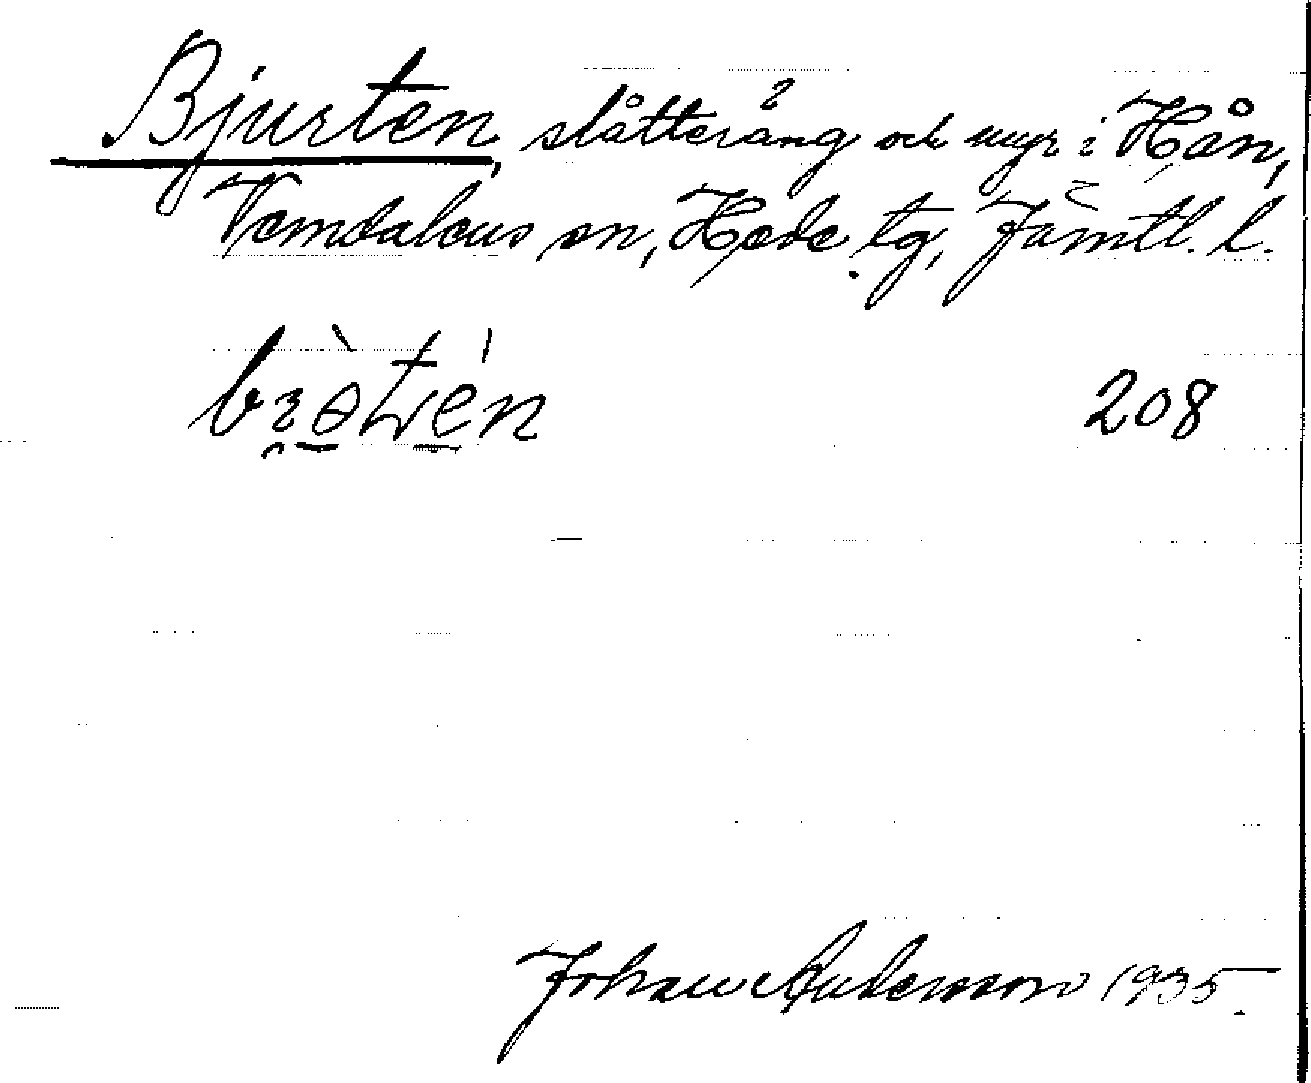 Bjurten, slåtteräng och myr i Hån,
Vemdalens sn, Hede tg, Jämtl. l.
208
Johan Andersson 1935